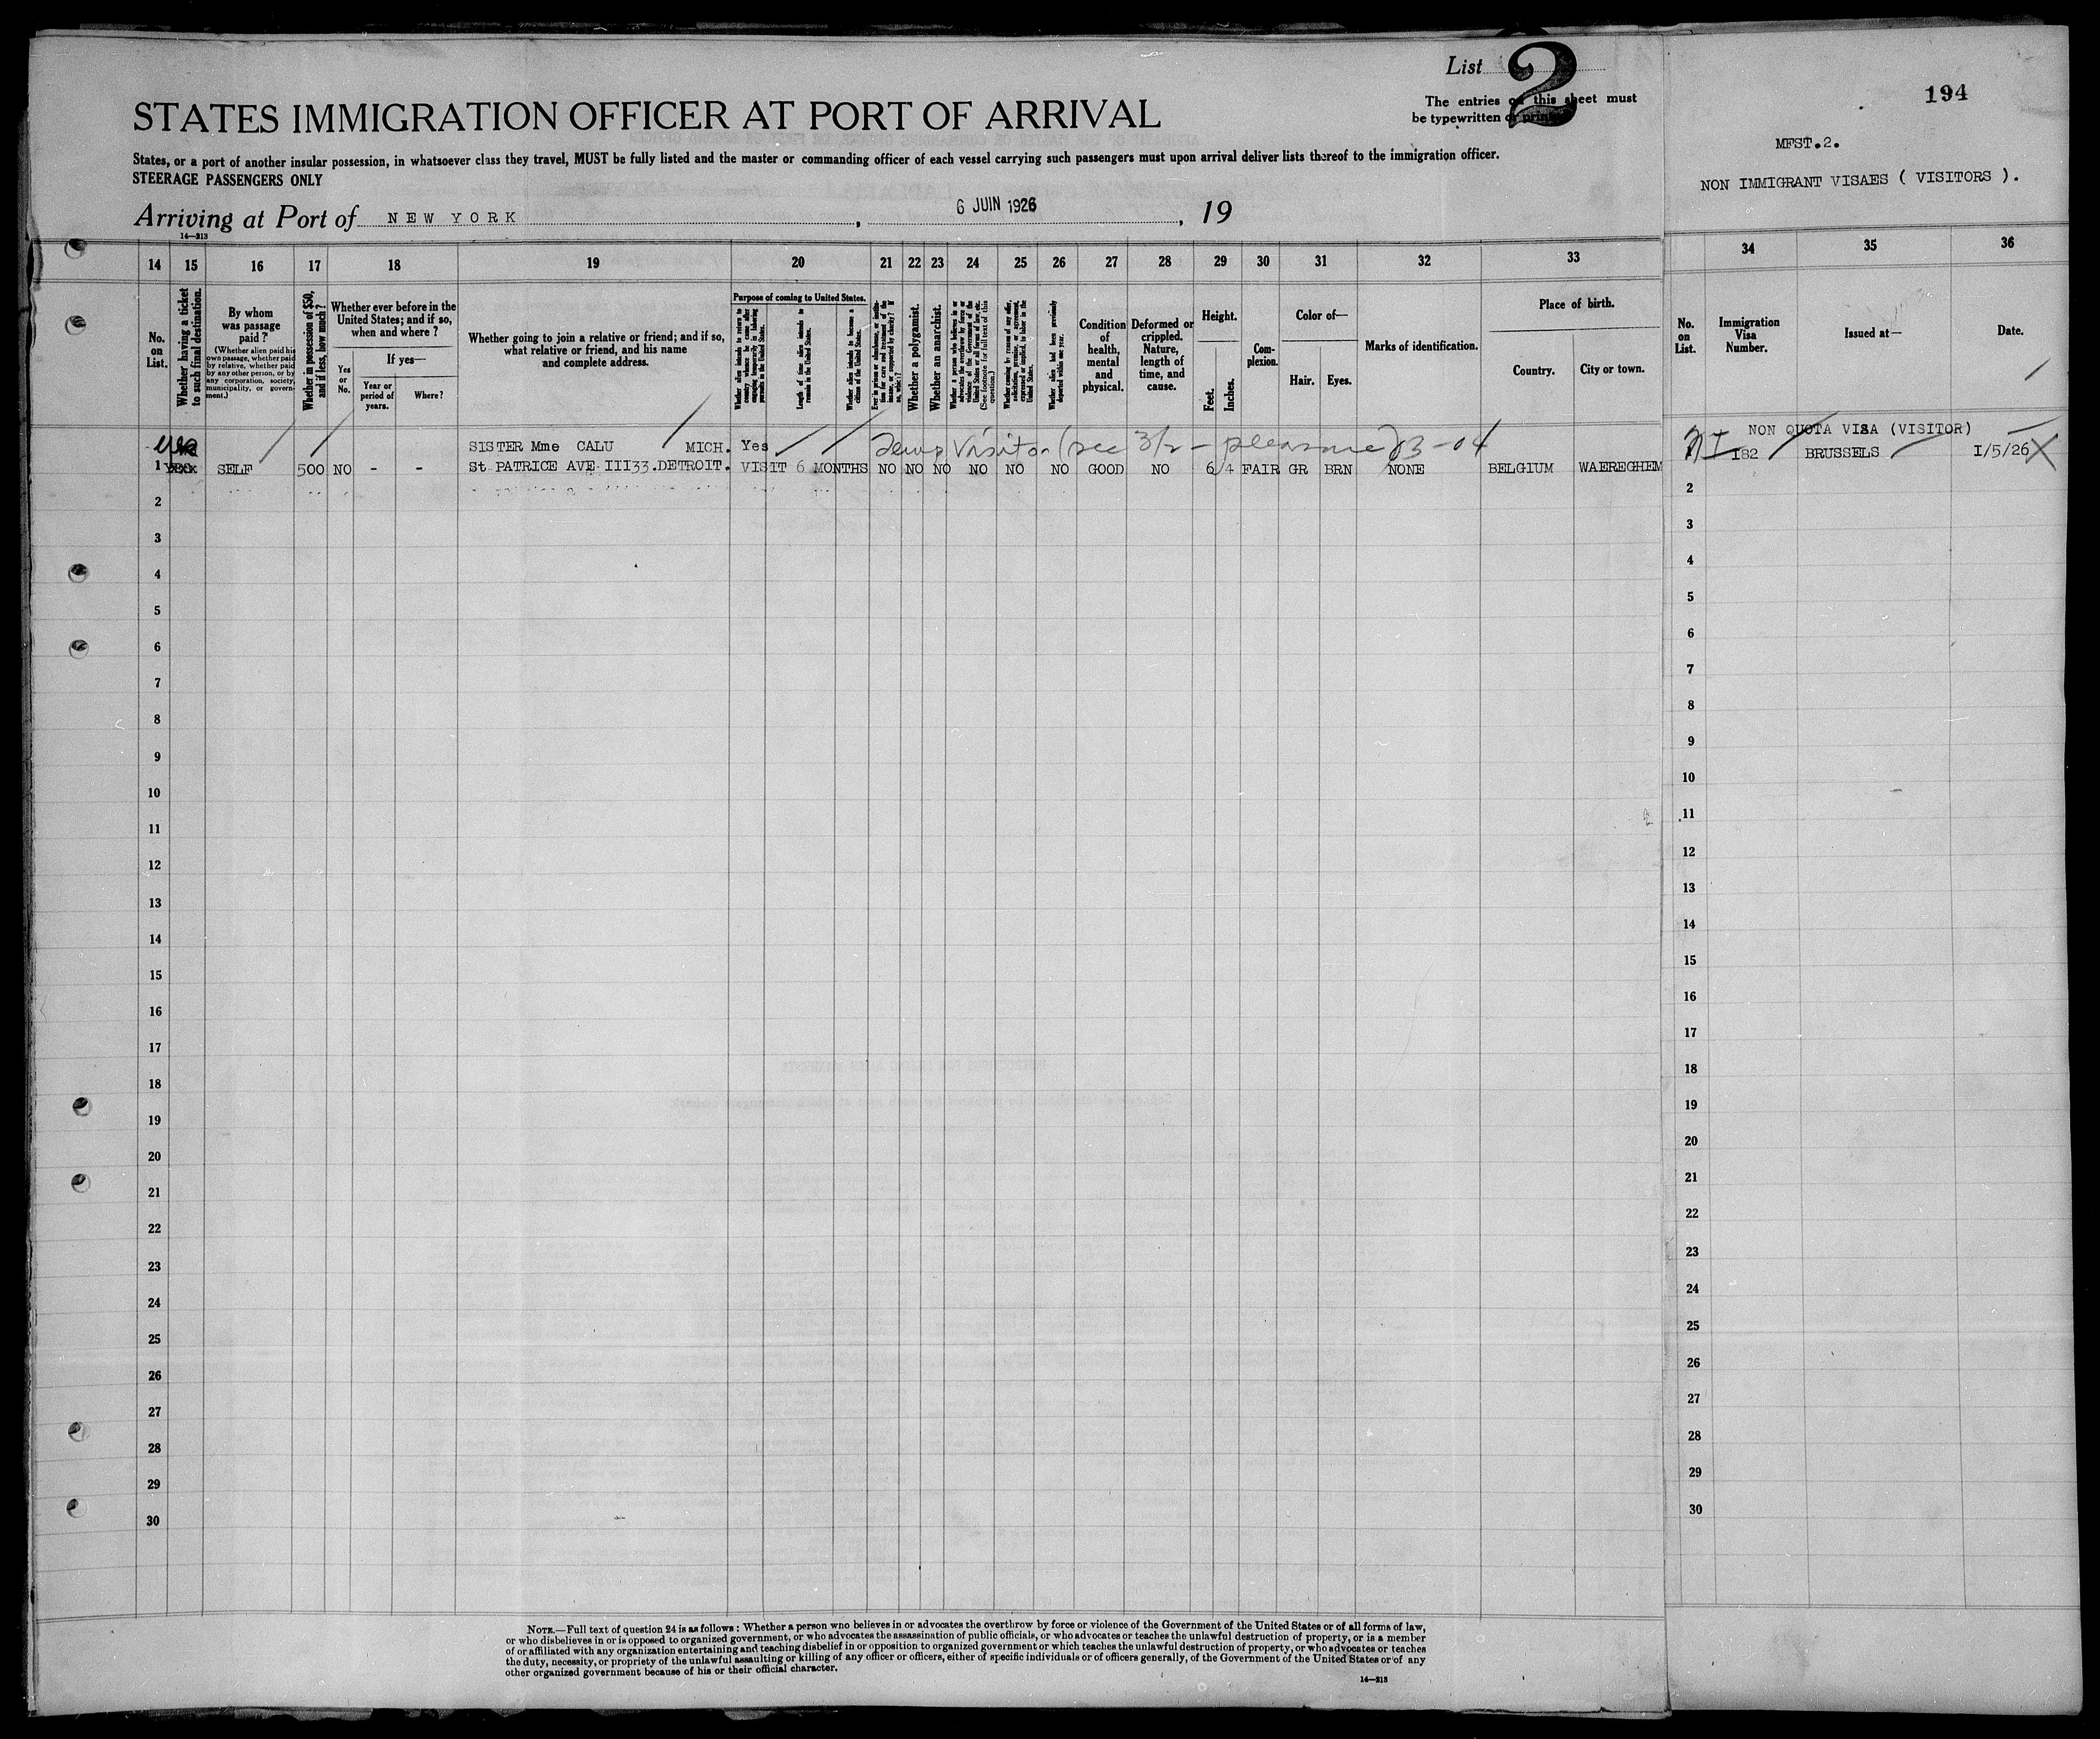 List 2
194
The entries on this sheet must
be typewritten or printed.
STATES IMMIGRATION OFFICER AT PORT OF ARRIVAL
MFST.2.
States, or a port of another insular possession, in whatsoever class they travel, MUST be fully listed and the master or commanding officer of each vessel carrying such passengers must upon arrival deliver lists thereof to the immigration officer.
STEERAGE PASSENGERS ONLY
NON IMMIGRANT VISAES ( VISITORS ).
Arriving at Port of NEW YORK , 6 JUIN 1926 , 19
14—213
14 15 16 17 18 19 20 21 22 23 24 25 26 27 28 29 30 31 32 33 34 35 36
No. on List.
Whether having a ticket to such final destination.
By whom was passage paid?
(Whether alien paid his own passage, whether paid by relative, whether paid by any other person, or by any corporation, society, municipality, or government.)
Whether in possession of $50, and if less, how much?
Whether ever before in the United States; and if so, when and where?
Yes or No.
If yes—
Year or period of years.
Where?
Whether going to join a relative or friend; and if so, what relative or friend, and his name and complete address.
Purpose of coming to United States.
Whether alien intends to return to country whence he came after engaging temporarily in laboring pursuits in the United States.
Length of time alien intends to remain in the United States.
Whether alien intends to become a citizen of the United States.
Ever in prison or almshouse, or institution for care and treatment of the insane, or supported by charity? If so, which?
Whether a polygamist.
Whether an anarchist.
Whether a person who believes in or advocates the overthrow by force or violence of the Government of the United States or all forms of law, etc. (See footnote for full text of this question.)
Whether coming by reason of any offer, solicitation, promise, or agreement, expressed or implied, to labor in the United States.
Whether alien had been previously deported within one year.
Condition of health, mental and physical.
Deformed or crippled. Nature, length of time, and cause.
Height.
Feet.
Inches.
Complexion.
Color of—
Hair.
Eyes.
Marks of identification.
Place of birth.
Country.
City or town.
No. on List.
Immigration Visa Number.
Issued at—
Date.
yes SISTER Mme CALU MICH. Yes Temp Visitor (sec 3/2 - pleasure) B-04 NON QUOTA VISA (VISITOR)
1 SELF 500 NO - - St PATRICE AVE III33.DETROIT. VISIT 6 MONTHS NO NO NO NO NO NO GOOD NO 6 4 FAIR GR BRN NONE BELGIUM WAEREGHEM I82 BRUSSELS I/5/26
2 2
3 3
4 4
5 5
6 6
7 7
8 8
9 9
10 10
11 11
12 12
13 13
14 14
15 15
16 16
17 17
18 18
19 19
20 20
21 21
22 22
23 23
24 24
25 25
26 26
27 27
28 28
29 29
30 30
NOTE.—Full text of question 24 is as follows: Whether a person who believes in or advocates the overthrow by force or violence of the Government of the United States or of all forms of law,
or who disbelieves in or is opposed to organized government, or who advocates the assassination of public officials, or who advocates or teaches the unlawful destruction of property, or is a member
of or affiliated with any organization entertaining and teaching disbelief in or opposition to organized government or which teaches the unlawful destruction of property, or who advocates or teaches
the duty, necessity, or propriety of the unlawful assaulting or killing of any officer or officers, either of specific individuals or of officers generally, of the Government of the United States or of any
other organized government because of his or their official character.
14—213